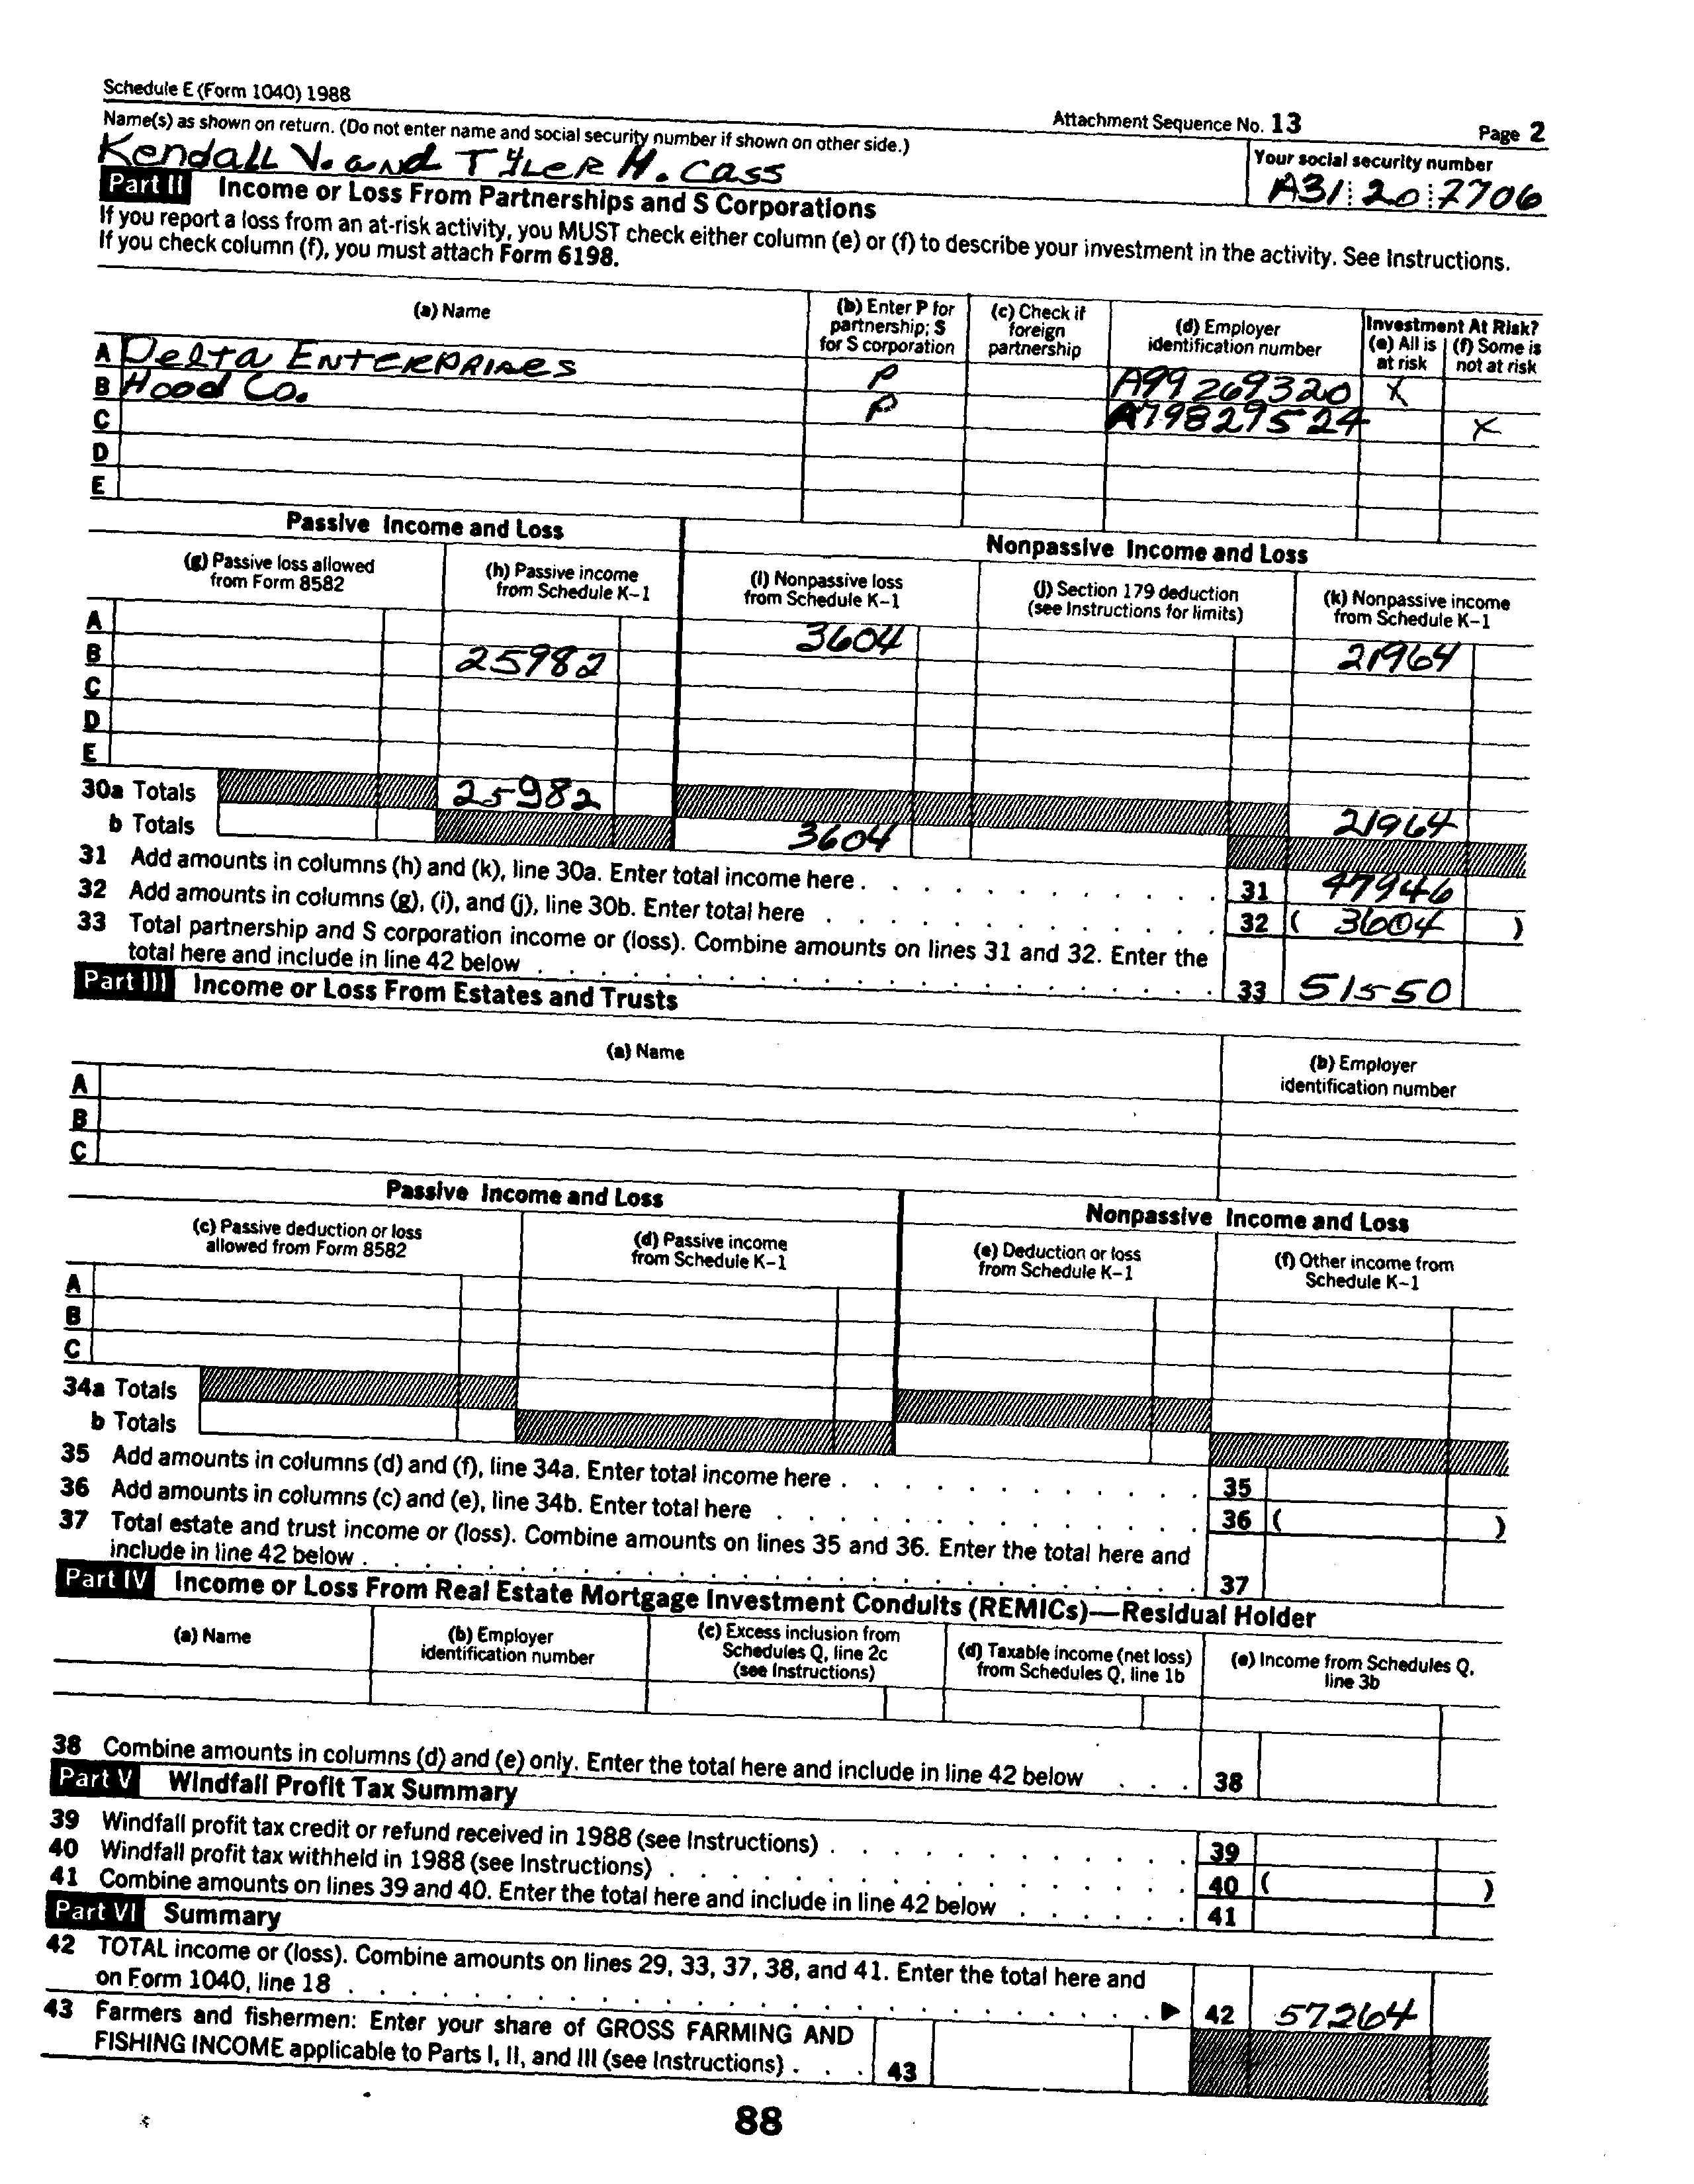 Schedule E (Form 1040) 1988
Attachment Sequence No. 13 Page 2
Name(s) as shown on return. (Do not enter name and social security number if shown on other side.)
Your social security number
Kendall V. and Tyler H. Cass
A31 20 7706
Part II Income or Loss From Partnerships and S Corporations
If you report a loss from an at-risk activity, you MUST check either column (e) or (f) to describe your investment in the activity. See Instructions.
If you check column (f), you must attach Form 6198.
(a) Name
(b) Enter P for partnership; S for S corporation
(c) Check if foreign partnership
(d) Employer identification number
Investment At Risk?
(e) All is at risk
(f) Some is not at risk
A Delta Enterprises P A99269320 X
B Hood Co. P A79829524 X
C
D
E
Passive Income and Loss
Nonpassive Income and Loss
(g) Passive loss allowed from Form 8582
(h) Passive income from Schedule K–1
(i) Nonpassive loss from Schedule K–1
(j) Section 179 deduction (see Instructions for limits)
(k) Nonpassive income from Schedule K–1
A 3604 21964
B 25982
C
D
E
30a Totals 25982 21964
b Totals 3604
31 Add amounts in columns (h) and (k), line 30a. Enter total income here . 31 47946
32 Add amounts in columns (g), (i), and (j), line 30b. Enter total here 32 ( 3604 )
33 Total partnership and S corporation income or (loss). Combine amounts on lines 31 and 32. Enter the
total here and include in line 42 below 33 51550
Part III Income or Loss From Estates and Trusts
(a) Name
(b) Employer identification number
A
B
C
Passive Income and Loss
Nonpassive Income and Loss
(c) Passive deduction or loss allowed from Form 8582
(d) Passive income from Schedule K–1
(e) Deduction or loss from Schedule K–1
(f) Other income from Schedule K–1
A
B
C
34a Totals
b Totals
35 Add amounts in columns (d) and (f), line 34a. Enter total income here . 35
36 Add amounts in columns (c) and (e), line 34b. Enter total here 36 ( )
37 Total estate and trust income or (loss). Combine amounts on lines 35 and 36. Enter the total here and
include in line 42 below . 37
Part IV Income or Loss From Real Estate Mortgage Investment Conduits (REMICs)—Residual Holder
(a) Name
(b) Employer identification number
(c) Excess inclusion from Schedules Q, line 2c (see Instructions)
(d) Taxable income (net loss) from Schedules Q, line 1b
(e) Income from Schedules Q, line 3b
38 Combine amounts in columns (d) and (e) only. Enter the total here and include in line 42 below 38
Part V Windfall Profit Tax Summary
39 Windfall profit tax credit or refund received in 1988 (see Instructions) . 39
40 Windfall profit tax withheld in 1988 (see Instructions) 40 ( )
41 Combine amounts on lines 39 and 40. Enter the total here and include in line 42 below 41
Part VI Summary
42 TOTAL income or (loss). Combine amounts on lines 29, 33, 37, 38, and 41. Enter the total here and
on Form 1040, line 18 42 57264
43 Farmers and fishermen: Enter your share of GROSS FARMING AND
FISHING INCOME applicable to Parts I, II, and III (see Instructions) . 43
88